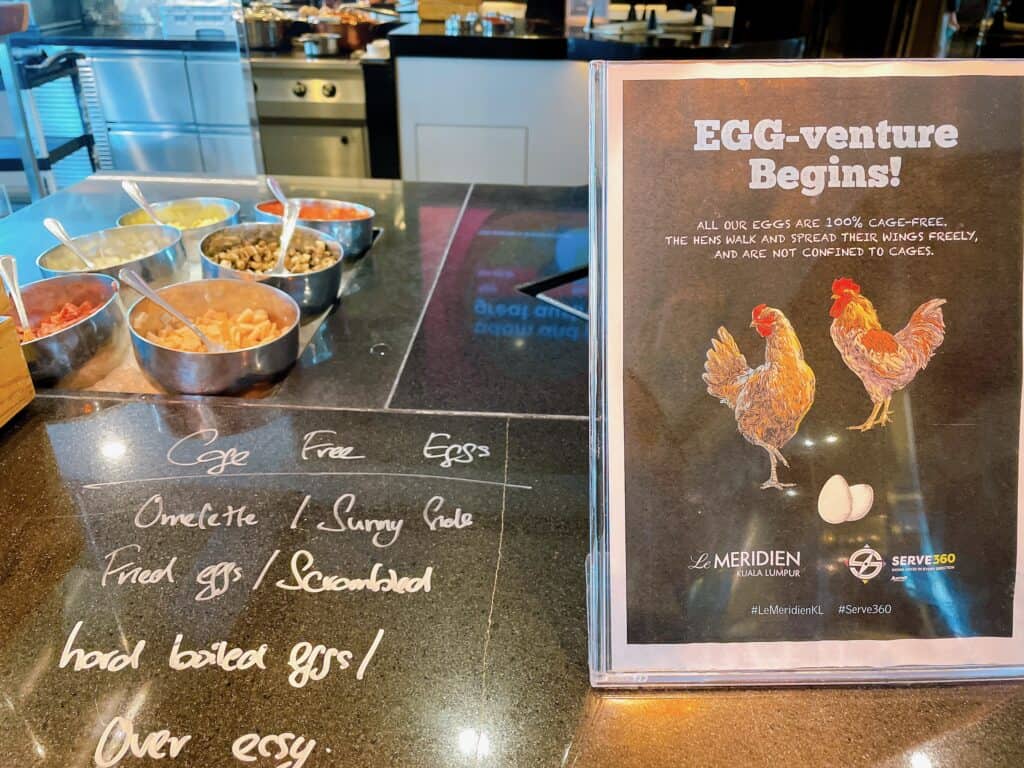 EGG-venture
Begins!
ALL OUR EGGS ARE 100% CAGE-FREE.
THE HENS WALK AND SPREAD THEIR WINGS FREELY,
AND ARE NOT CONFINED TO CAGES.
Le MERIDIEN
KUALA LUMPUR
SERVE360
DOING GOOD IN EVERY DIRECTION
Marriott
#LeMeridienKL #Serve360
Cage Free Eggs
Omelette / Sunny Side
Fried eggs / Scrambled
hard boiled eggs /
Over easy.